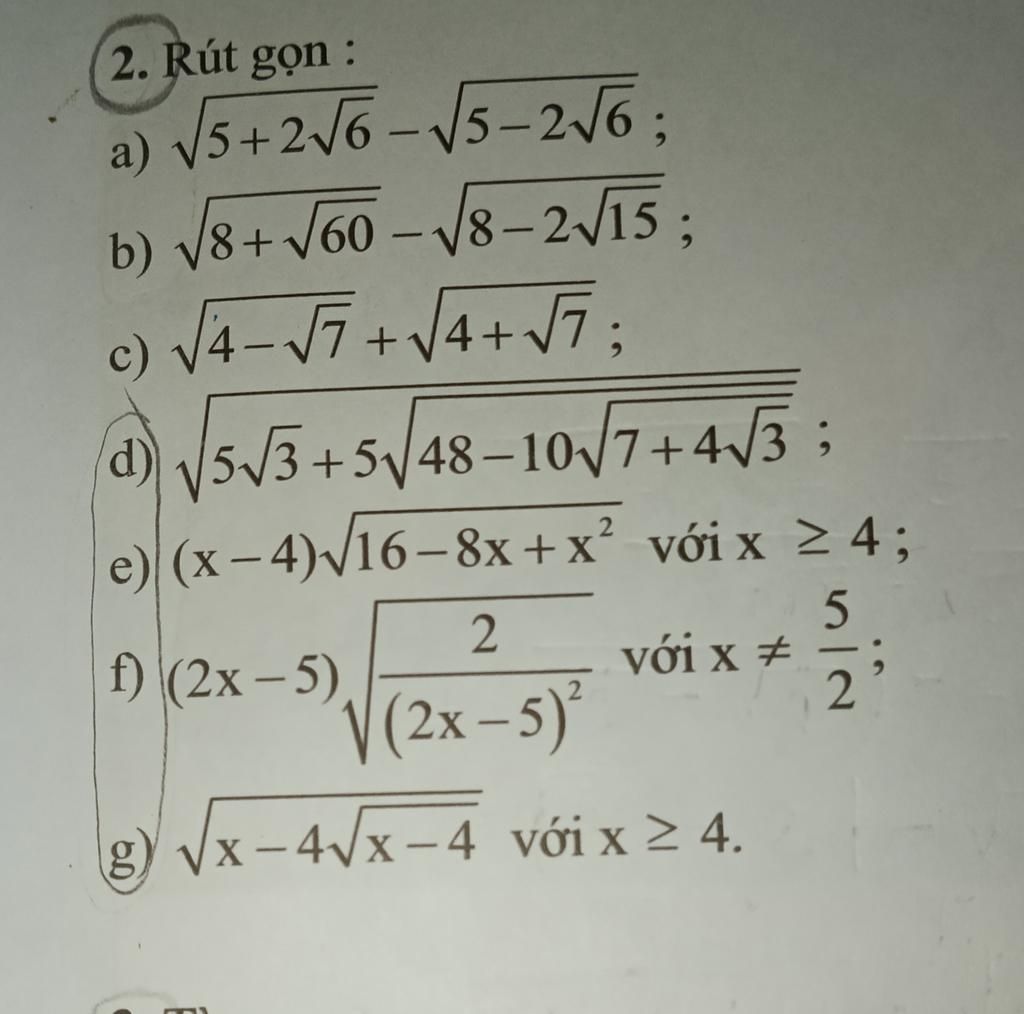 2. Rút gọn :
a) √(5+2√6) − √(5−2√6) ;
b) √(8+√60) − √(8−2√15) ;
c) √(4−√7) + √(4+√7) ;
d) √(5√3+5√(48−10√(7+4√3))) ;
e) (x−4)√(16−8x+x²) với x ≥ 4 ;
f) (2x−5)√(2/(2x−5)²) với x ≠ 5/2 ;
g) √(x−4√(x−4)) với x ≥ 4.